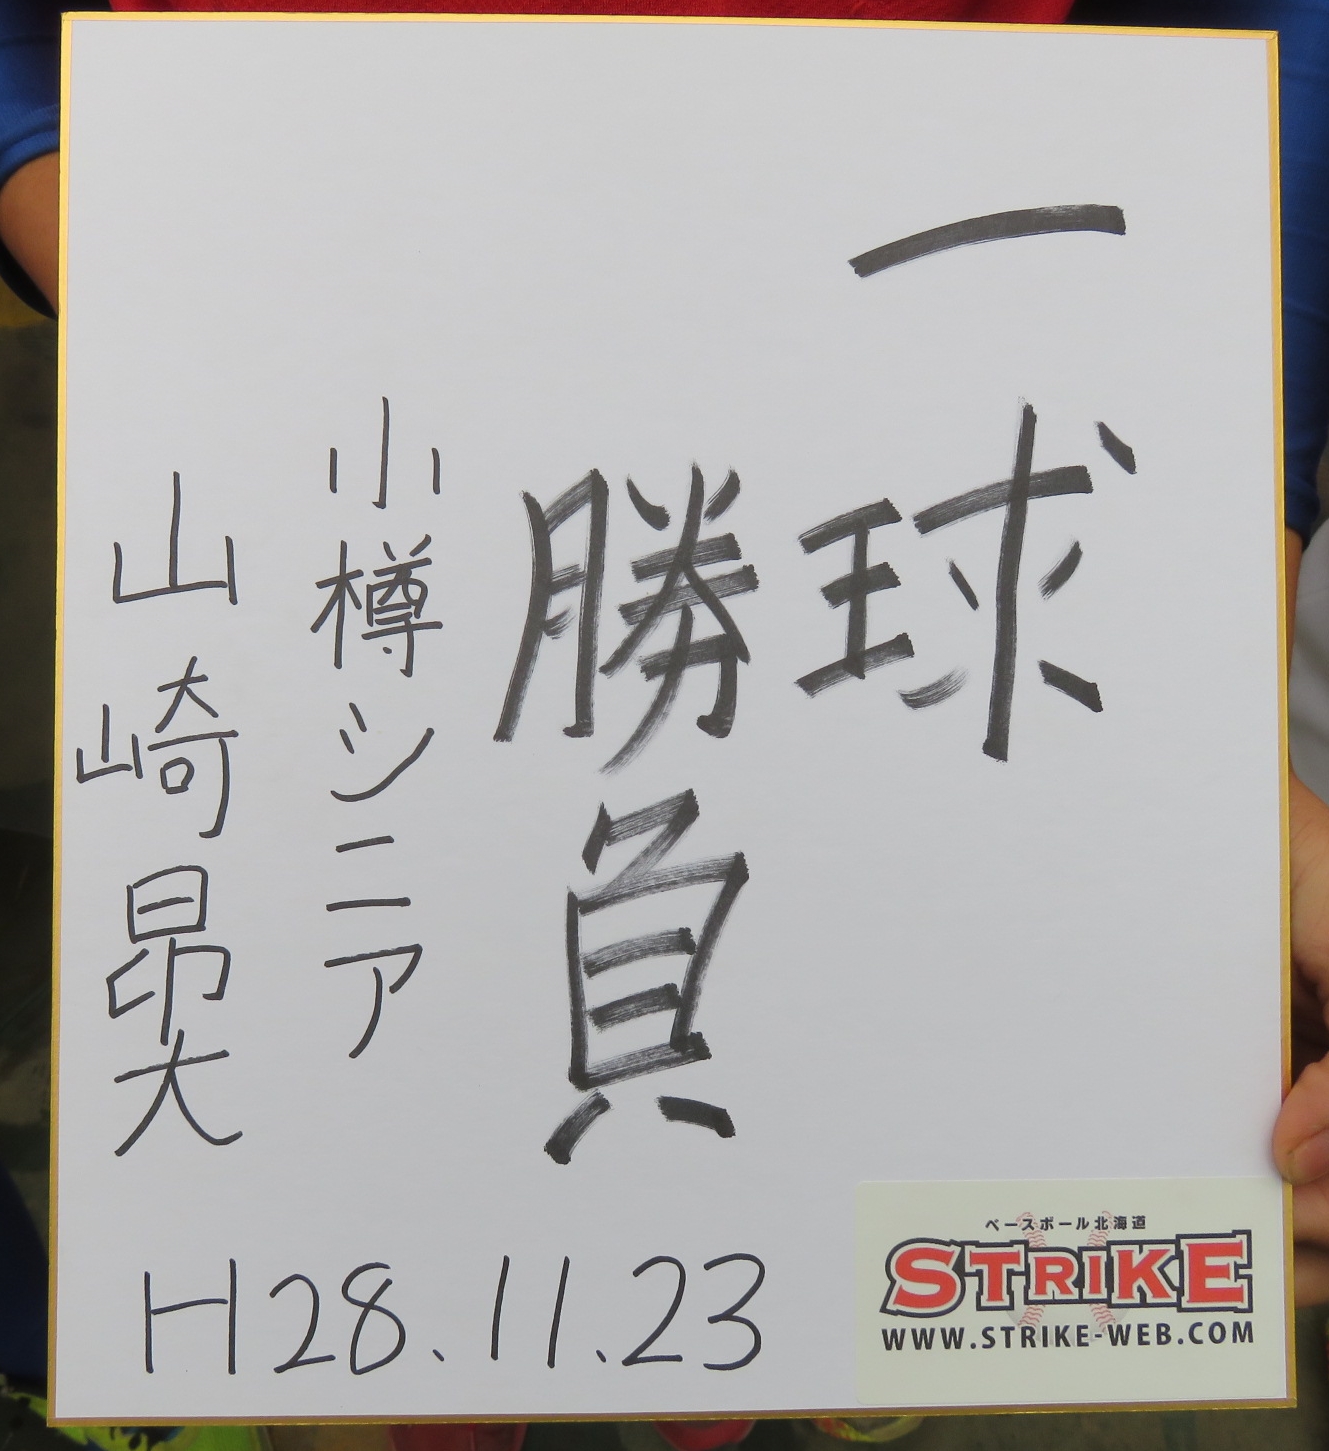 一球
勝負
小樽シニア
山崎昂大
H28.11.23
ベースボール北海道
STRIKE
WWW.STRIKE-WEB.COM